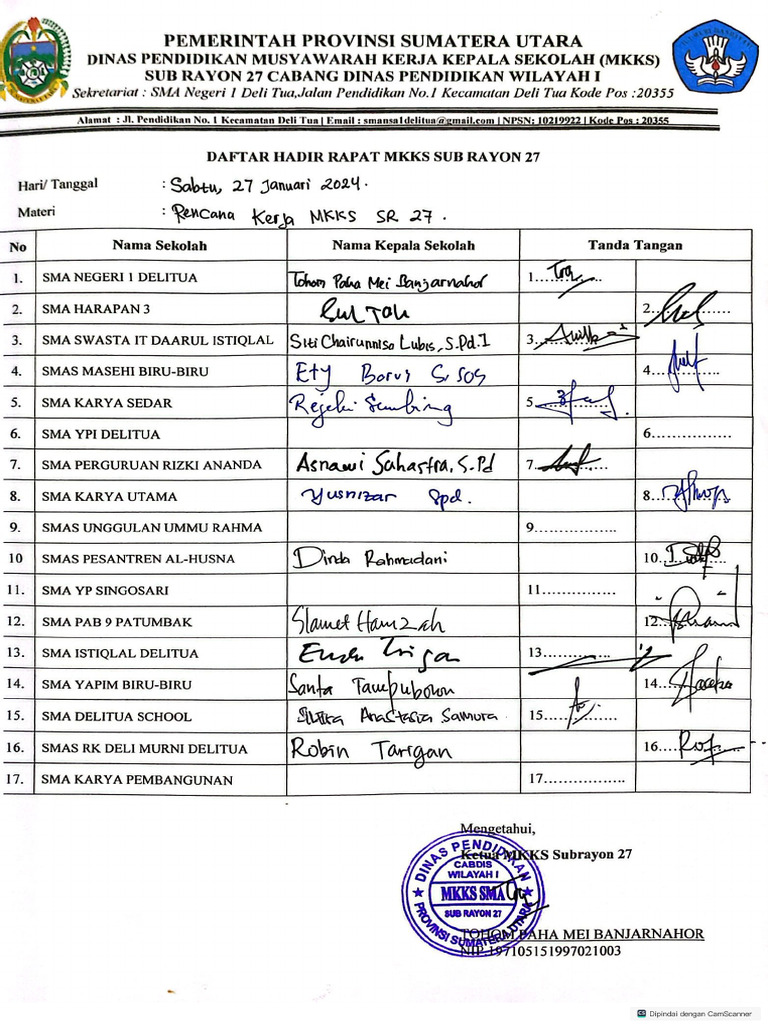 PEMERINTAH PROVINSI SUMATERA UTARA
DINAS PENDIDIKAN MUSYAWARAH KERJA KEPALA SEKOLAH (MKKS)
SUB RAYON 27 CABANG DINAS PENDIDIKAN WILAYAH I
Sekretariat : SMA Negeri 1 Deli Tua,Jalan Pendidikan No.1 Kecamatan Deli Tua Kode Pos :20355
Alamat : Jl. Pendidikan No. 1 Kecamatan Deli Tua | Email : smansa1delitua@gmail.com | NPSN: 10219922 | Kode Pos : 20355
DAFTAR HADIR RAPAT MKKS SUB RAYON 27
Hari/ Tanggal : Sabtu, 27 Januari 2024.
Materi : Rencana Kerja MKKS SR 27.
No Nama Sekolah Nama Kepala Sekolah Tanda Tangan
1. SMA NEGERI 1 DELITUA Tohom Paha Mei Banjarnahor 1..............
2. SMA HARAPAN 3 2..............
3. SMA SWASTA IT DAARUL ISTIQLAL Siti Chairunnisa Lubis, S.Pd.I 3..............
4. SMAS MASEHI BIRU-BIRU Ety Borus S.sos 4..............
5. SMA KARYA SEDAR Rejeki Sembiring 5..............
6. SMA YPI DELITUA 6..............
7. SMA PERGURUAN RIZKI ANANDA Asnawi Sahastra, S.Pd 7..............
8. SMA KARYA UTAMA Yusnizar Spd. 8..............
9. SMAS UNGGULAN UMMU RAHMA 9..............
10 SMAS PESANTREN AL-HUSNA Dinda Rahmadani 10..............
11. SMA YP SINGOSARI 11..............
12. SMA PAB 9 PATUMBAK Slamet Hamzah 12..............
13. SMA ISTIQLAL DELITUA 13..............
14. SMA YAPIM BIRU-BIRU Santa Tampubolon 14..............
15. SMA DELITUA SCHOOL Anastasia Samura 15..............
16. SMAS RK DELI MURNI DELITUA Robin Tarigan 16..............
17. SMA KARYA PEMBANGUNAN 17..............
Mengetahui,
Ketua MKKS Subrayon 27
DINAS PENDIDIKAN
CABDIS
WILAYAH I
MKKS SMA
SUB RAYON 27
PROVINSI SUMATERA UTARA
TOHOM PAHA MEI BANJARNAHOR
NIP.197105151997021003
Dipindai dengan CamScanner